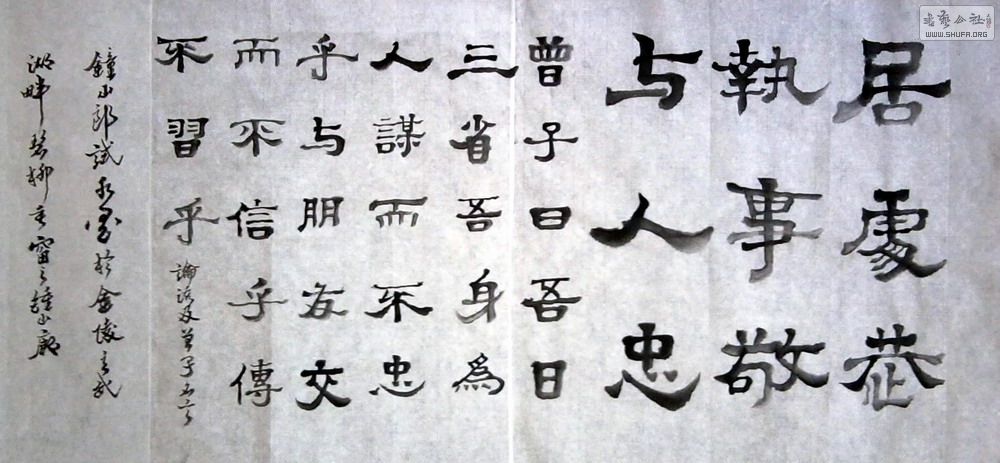 居處恭
執事敬
与人忠
曾子曰吾日
三省吾身為
人謀而不忠
乎与朋友交
而不信乎傳
不習乎
論語及曾子名言
鐘山郎試水墨於金陵玄武
湖畔碧柳重窗之鐘山廊
書藝公社
WWW.SHUFA.ORG